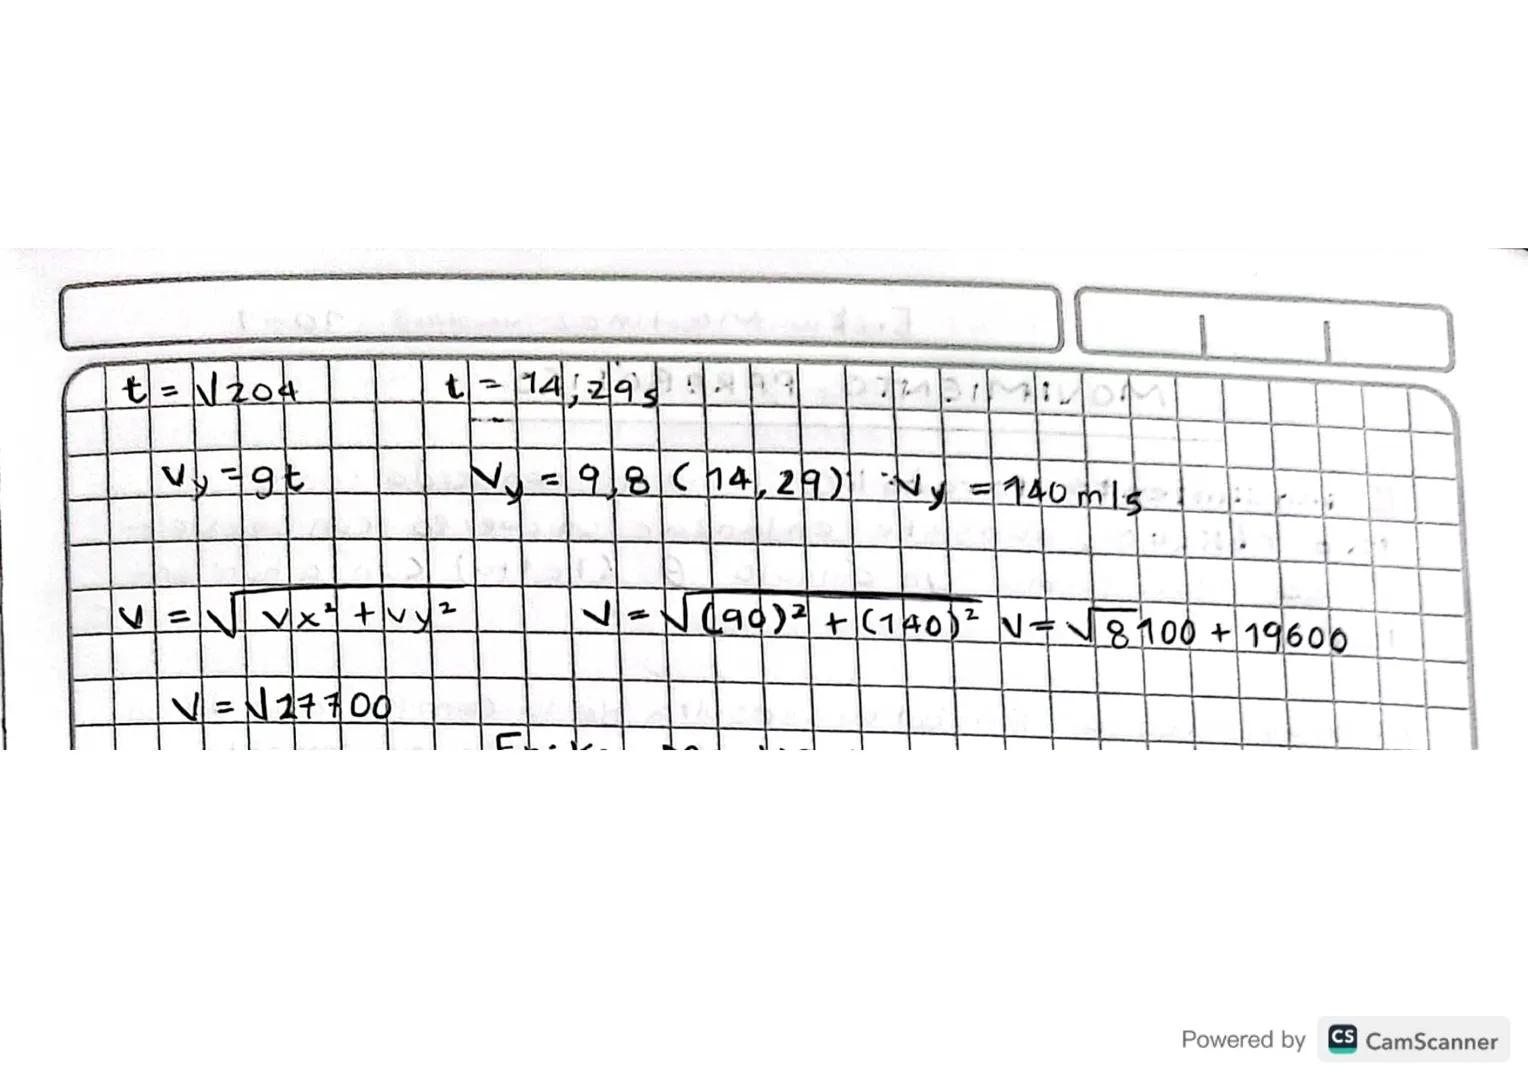 t = √204 t = 14,29s
Vy = gt Vy = 9,8 (14,29) Vy = 140 m/s
V = √Vx² + Vy² V = √(90)² + (140)² V = √8100 + 19600
V = √27700
Powered by CS CamScanner